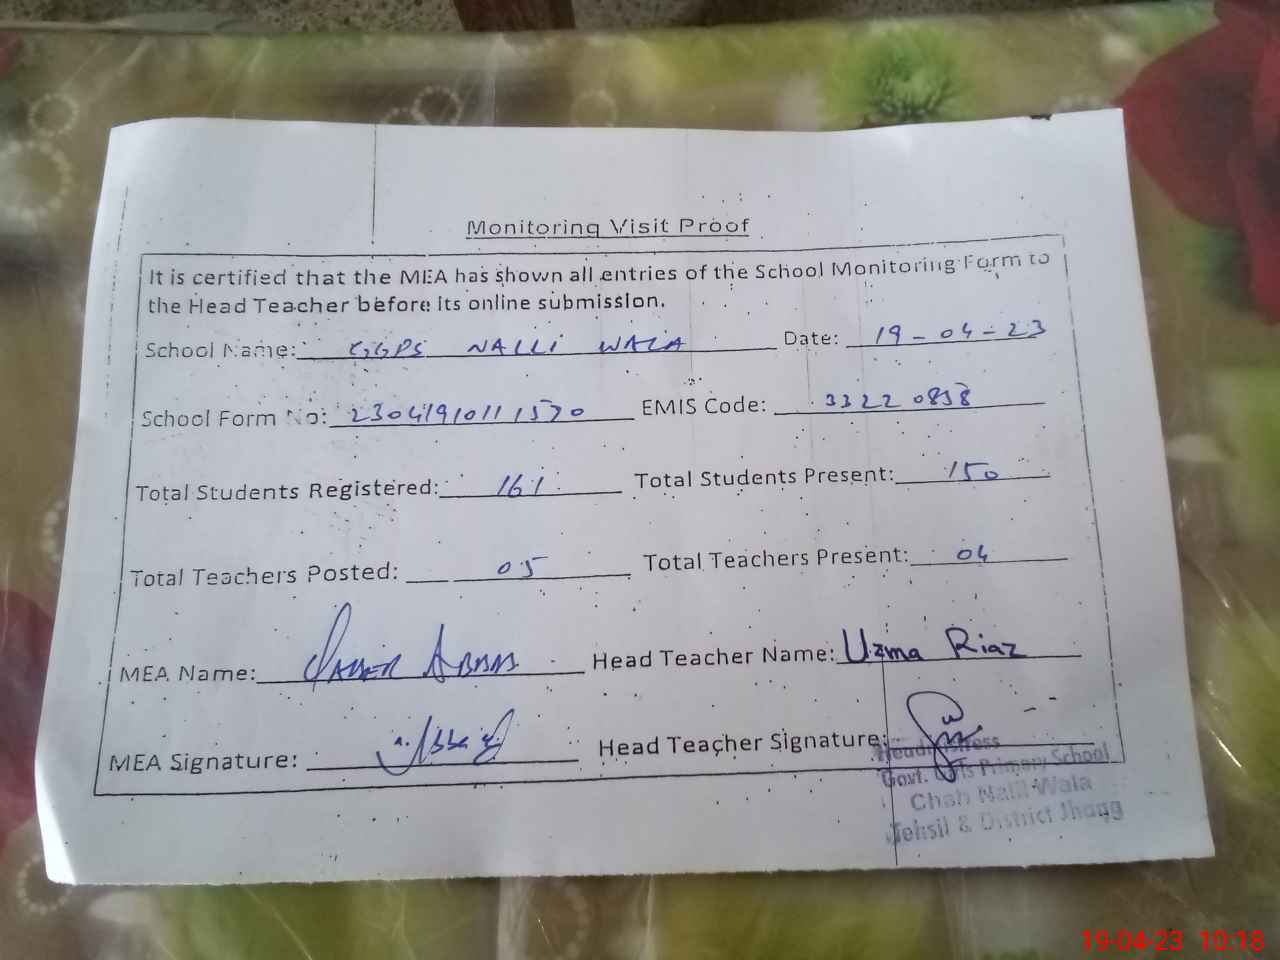 Monitoring Visit Proof
It is certified that the MEA has shown all entries of the School Monitoring Form to
the Head Teacher before its online submission.
School Name: GGPS NALLI WALA Date: 19-04-23
School Form No: 23041910111570 EMIS Code: 33220838
Total Students Registered: 161 Total Students Present: 150
Total Teachers Posted: 05 Total Teachers Present: 04
MEA Name: ABBAS Head Teacher Name: Uzma Riaz
MEA Signature: Head Teacher Signature:
Headmistress
Govt. Girls Primary School
Chah Nalli Wala
Tehsil & District Jhang
19-04-23 10:18